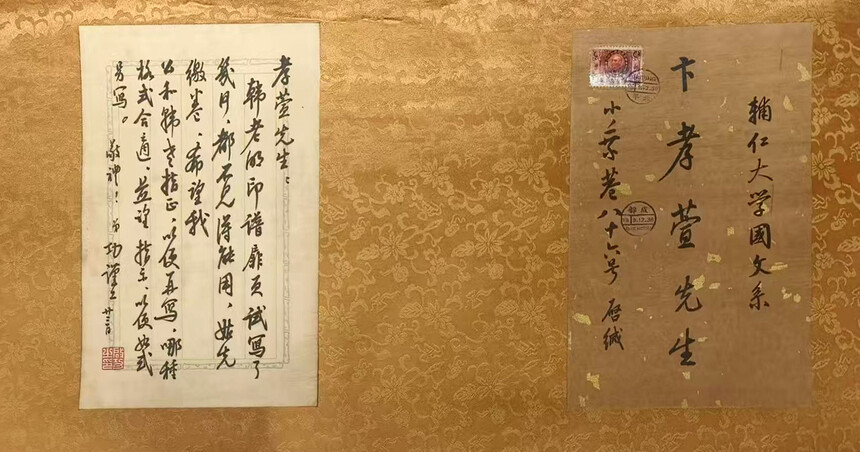 孝萱先生：
韩老的印谱扉页试写了
幾月、都不见得能用、姑先
缴卷、希望我
公和韩老指正、以便再写。哪种
格式合适、並望指示、以便如式
另写。
敬礼！ 弟功谨上 廿三日
輔仁大学國文系
卞孝萱先生
小乘巷八十六号 启缄